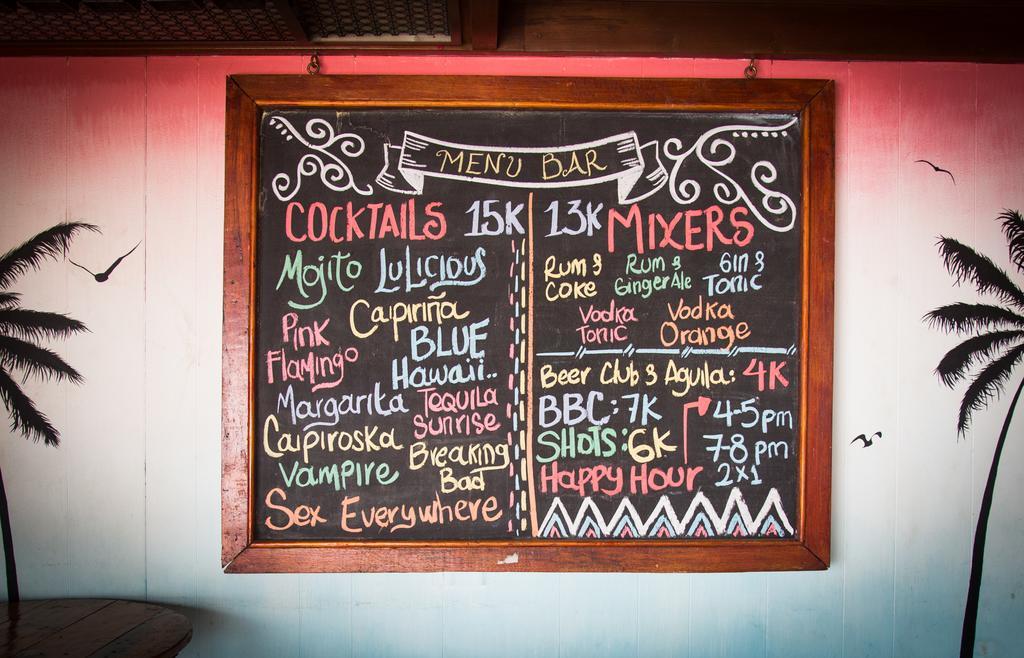 MENU BAR
COCKTAILS 15K
Mojito LuLicious
Caipiriña
Pink Flamingo
BLUE Hawaii..
Margarita
Tequila Sunrise
Caipiroska
Breaking Bad
Vampire
Sex Everywhere
13K MIXERS
Rum & Coke
Rum & Ginger Ale
Gin & Tonic
Vodka Tonic
Vodka Orange
Beer Club & Aguila: 4K
BBC: 7K
SHOTS: 6K
Happy Hour
4-5pm
7-8 pm
2x1